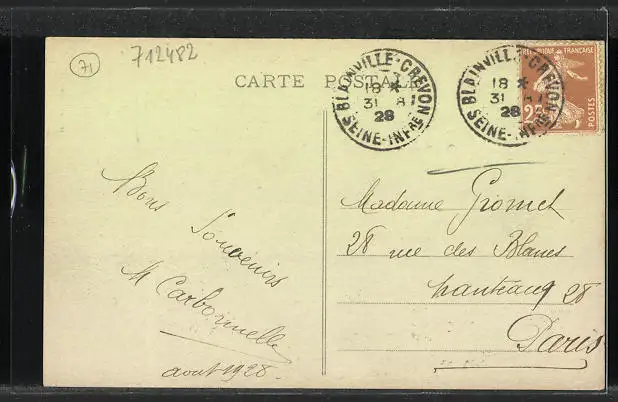 71
712482
CARTE POSTALE
BLAINVILLE-CREVON
18 *
31 8
28
SEINE-INFRE
BLAINVILLE-CREVON
18 *
31 8
28
SEINE-INFRE
REPUBLIQUE FRANÇAISE
25
POSTES
Bons
Souvenirs
M Carbonnelle
aout 1928.
Madame Gromet
28 rue des Blancs
manteaux 28
Paris